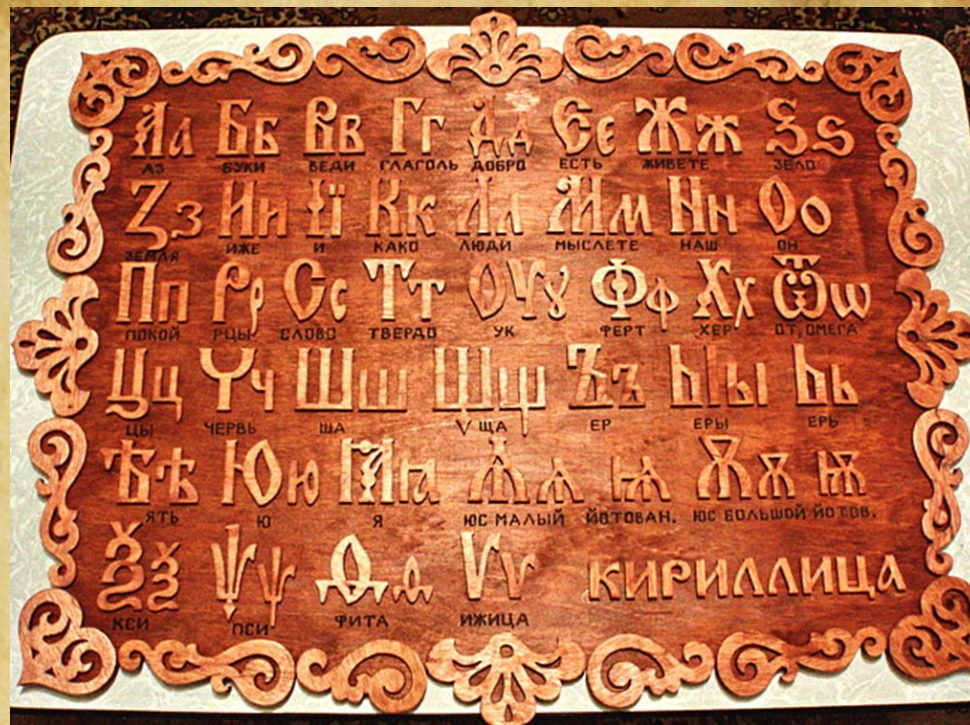 Аа Бб Вв Гг Дд Єє Жж Ѕѕ
АЗ БУКИ ВЕДИ ГЛАГОЛЬ ДОБРО ЕСТЬ ЖИВЕТЕ ЗЕЛО
Ꙁз Ии Її Кк Лл Мм Нн Оо
ЗЕМЛЯ ИЖЕ И КАКО ЛЮДИ МЫСЛЕТЕ НАШ ОН
Пп Рр Сс Тт Оѵꙋ Фф Хх Ѿѡ
ПОКОЙ РЦЫ СЛОВО ТВЕРДО УК ФЕРТ ХЕР ОТ, ОМЕГА
Цц Чч Шш Щщ Ъъ Ыы Ьь
ЦЫ ЧЕРВЬ ША ЩА ЕР ЕРЫ ЕРЬ
Ѣѣ Юю Ꙗꙗ Ѧѧ ѩ Ѫѫ ѭ
ЯТЬ Ю Я ЮС МАЛЫЙ ЙОТОВАН. ЮС БОЛЬШОЙ ЙОТОВ.
Ѯѯ Ѱѱ Ѳѳ Ѵѵ КИРИЛЛИЦА
КСИ ПСИ ФИТА ИЖИЦА